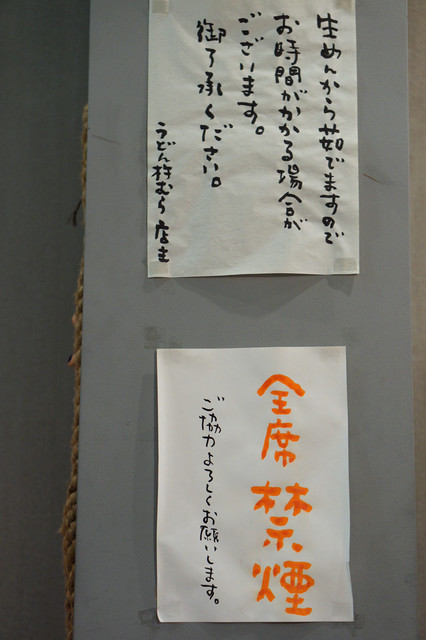 生めんから茹でますので
お時間がかかる場合が
ございます。
御了承ください。
うどん杵むら 店主
全席 禁煙
ご協力よろしくお願いします。